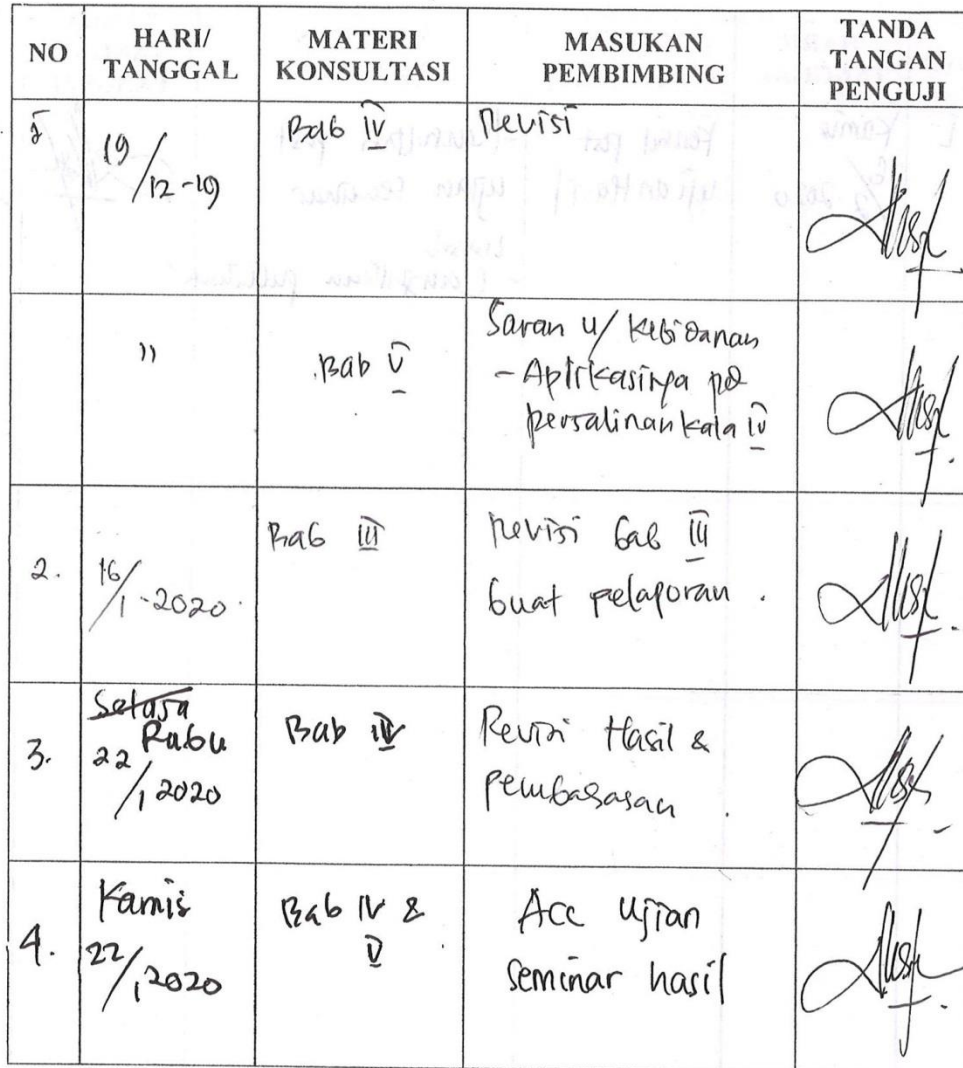 NO
HARI/
TANGGAL
MATERI
KONSULTASI
MASUKAN
PEMBIMBING
TANDA
TANGAN
PENGUJI
1
19/12-19
Bab IV
Revisi
"
Bab V
Saran u/ Kebidanan
- Aplikasinya pd
persalinan kala IV
2.
16/1-2020
Bab III
Revisi bab III
buat pelaporan.
3.
Selasa
Rabu
22/1 2020
Bab IV
Revisi Hasil &
pembahasan.
4.
Kamis
22/1 2020
Bab IV &
V
Acc Ujian
seminar hasil